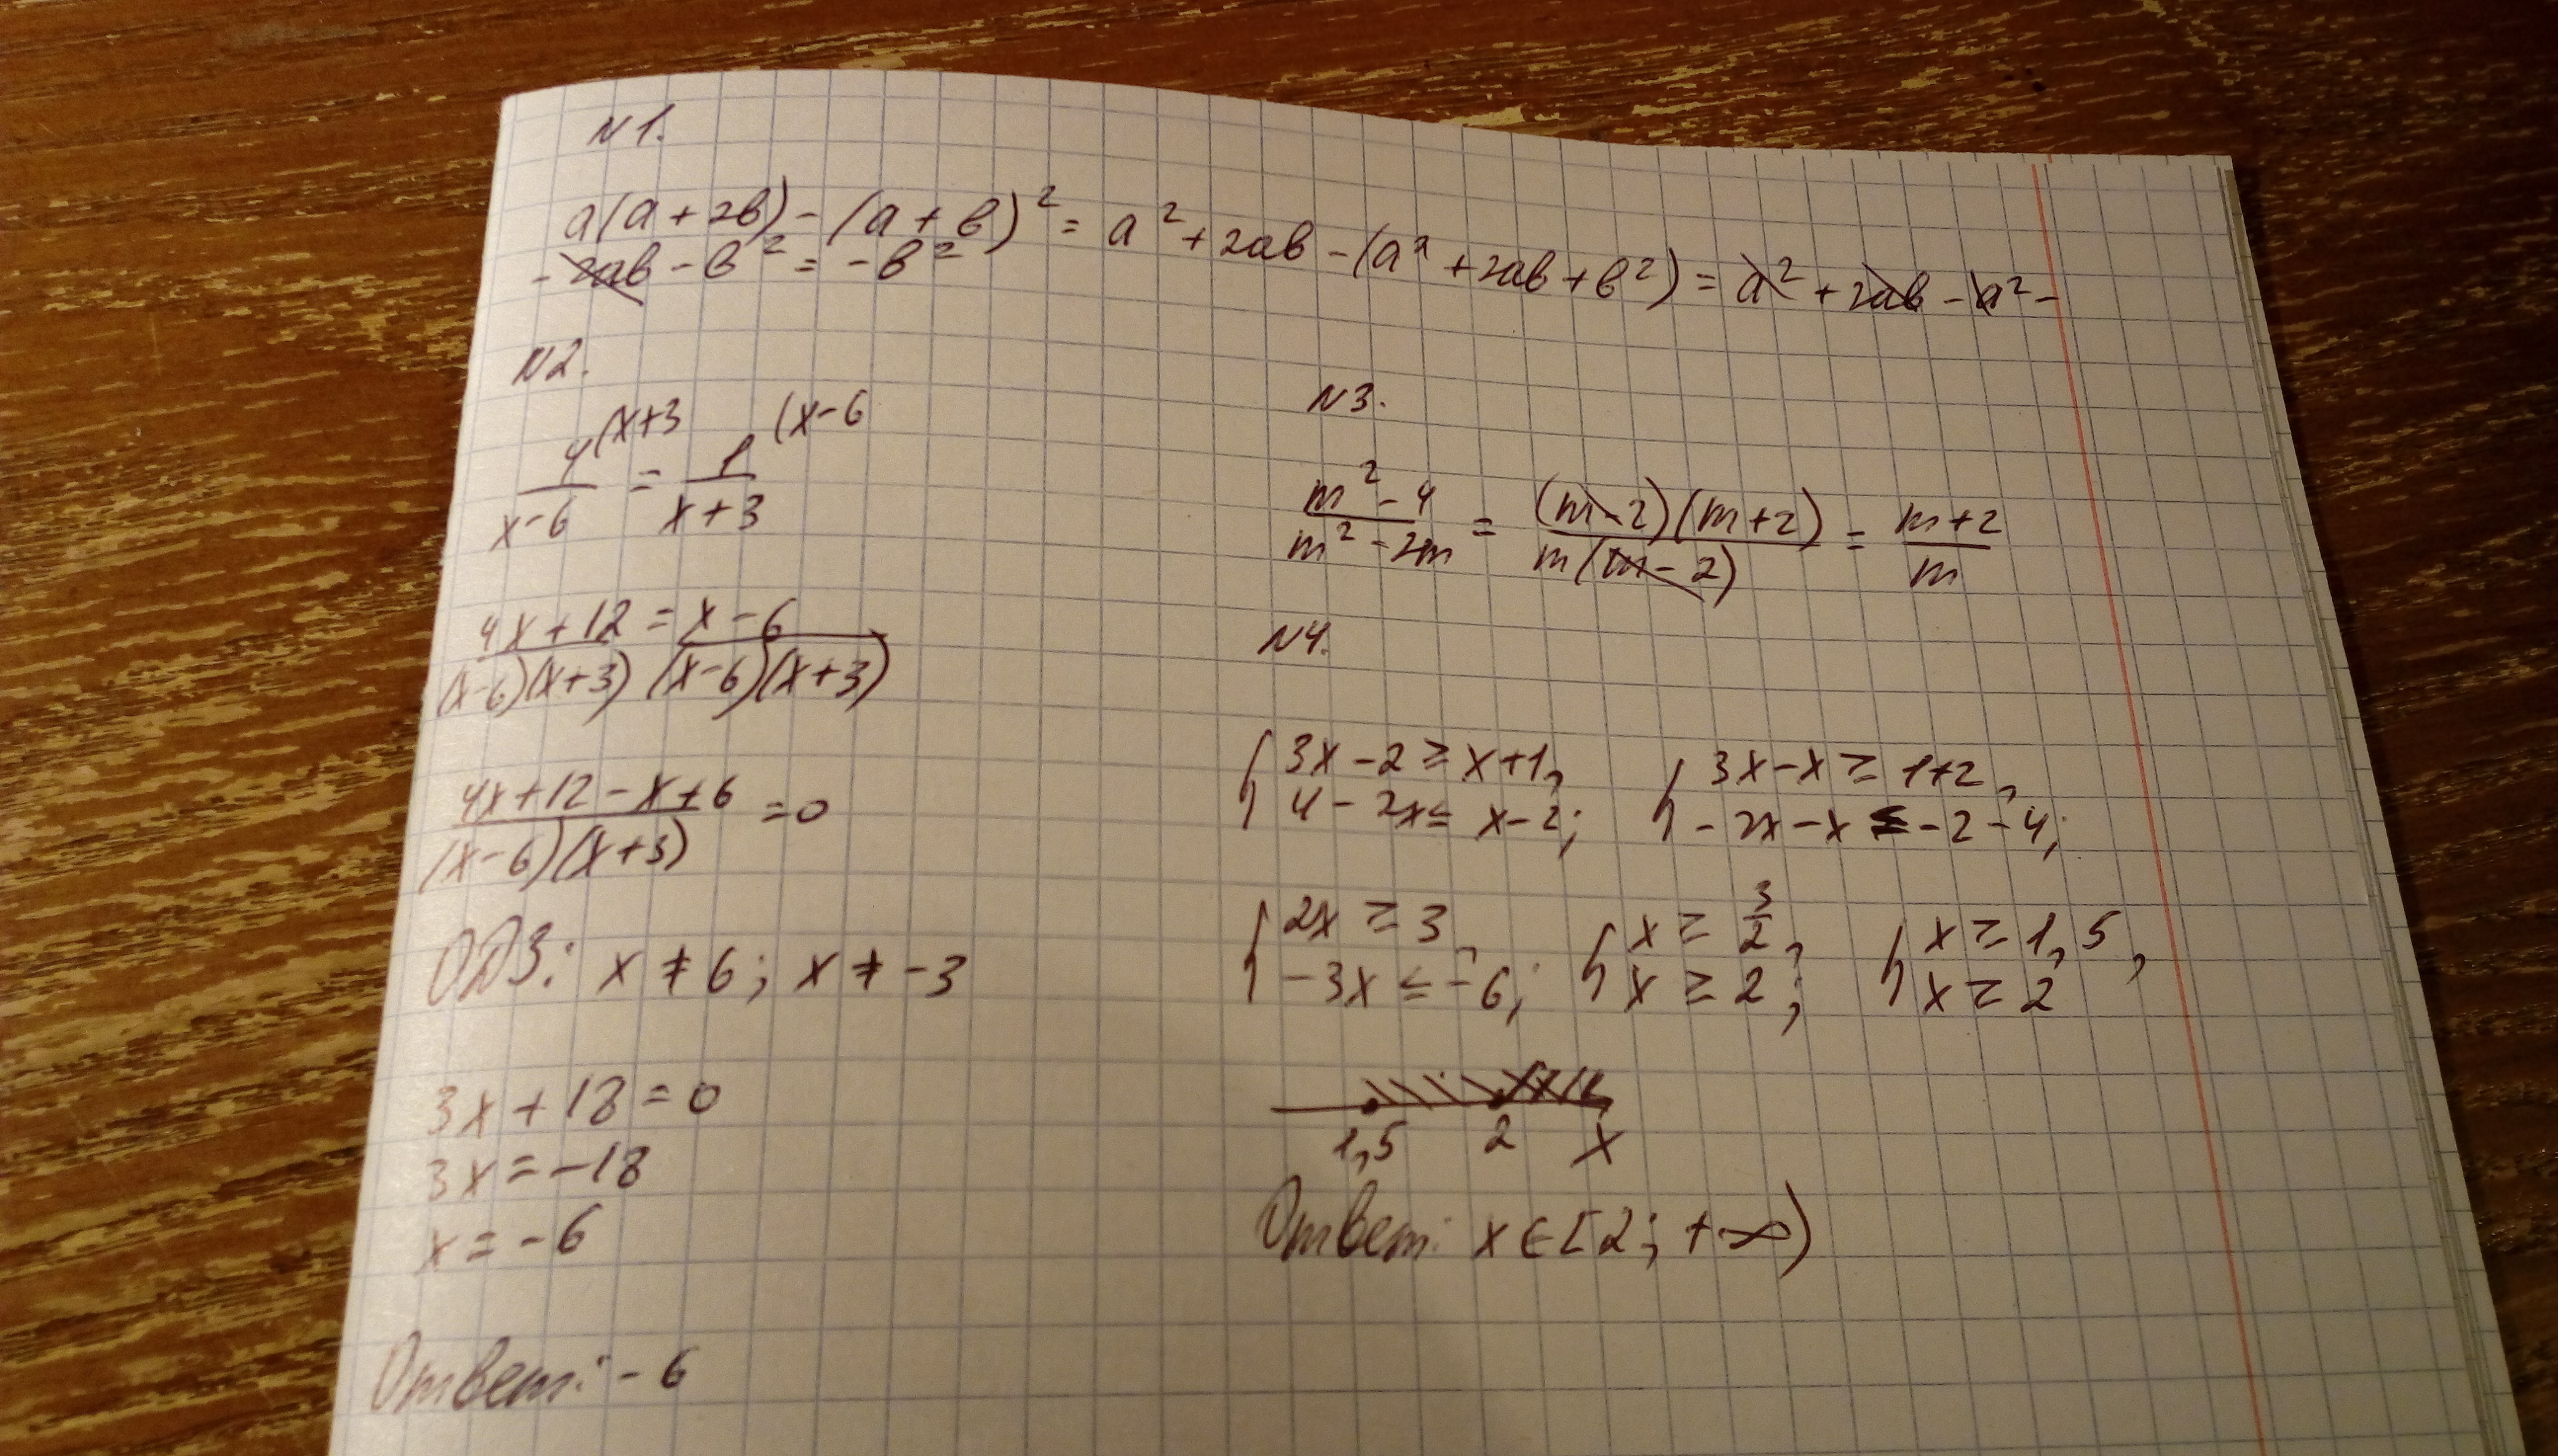 N1.
a(a+2b)-(a+b)²= a²+2ab-(a²+2ab+b²)=a²+2ab-a²-
-2ab-b²=-b²
N2.
4(x+3 1(x-6
— = —
x-6 x+3
4x+12 = x-6
(x-6)(x+3) (x-6)(x+3)
4x+12-x+6 =0
(x-6)(x+3)
ОДЗ: x≠6; x≠-3
3x+18=0
3x=-18
x=-6
Ответ: -6
N3.
m²-4 = (m-2)(m+2) = m+2
m²-2m m(m-2) m
N4.
{3x-2≥x+1, {3x-x≥1+2,
4-2x≤x-2; -2x-x≤-2-4;
{2x≥3, {x≥3/2, {x≥1,5,
-3x≤-6; x≥2; x≥2
1,5 2 x
Ответ: x∈[2; +∞)